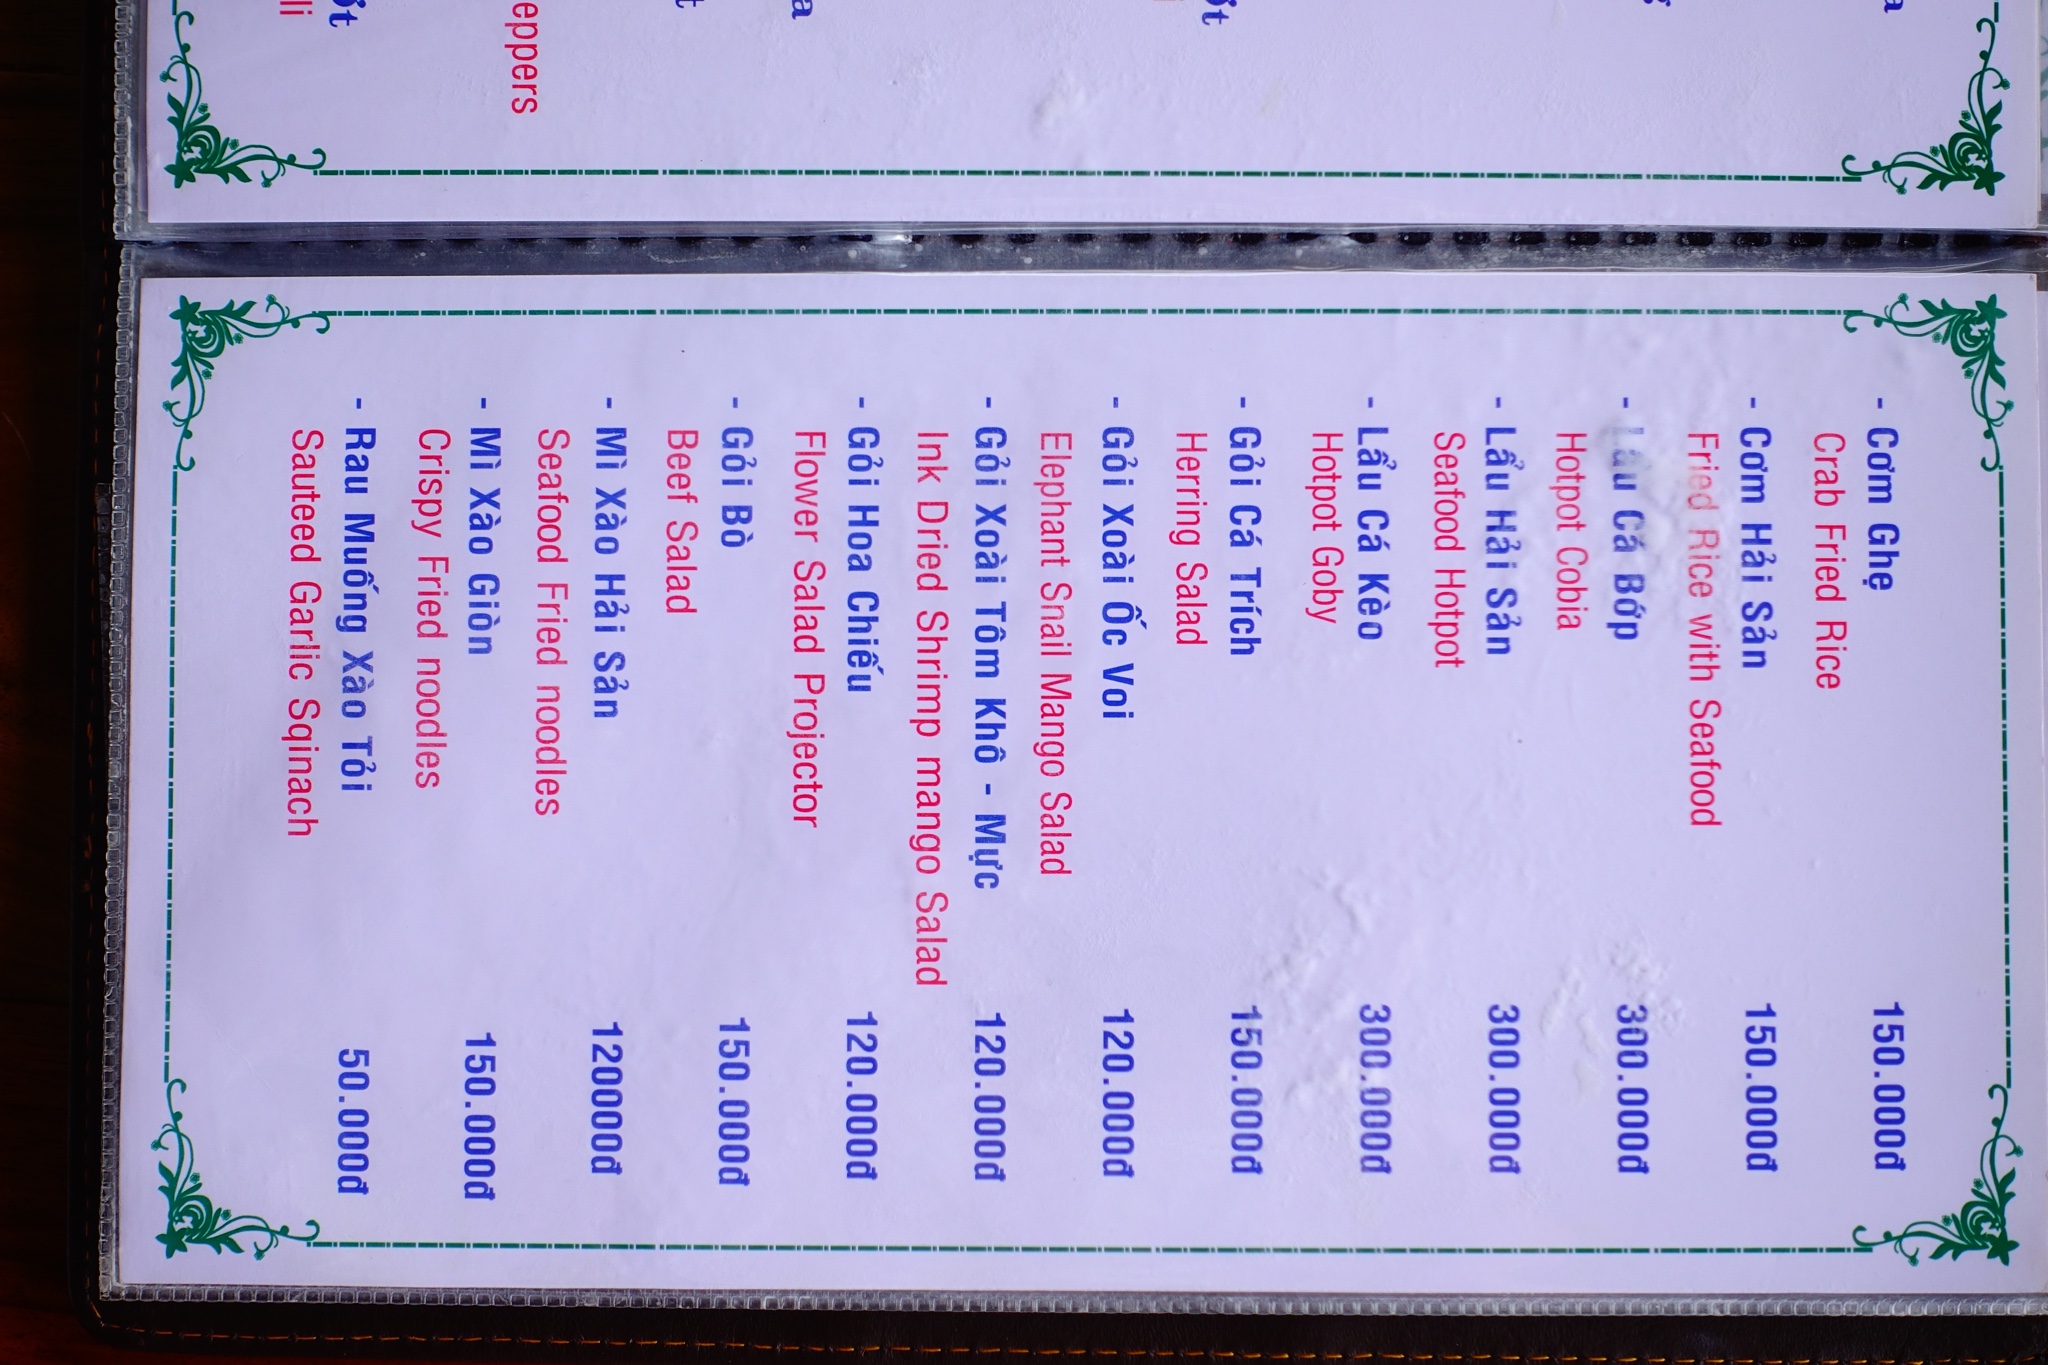 - Cơm Ghẹ 150.000đ
Crab Fried Rice
- Cơm Hải Sản 150.000đ
Fried Rice with Seafood
- Lẩu Cá Bớp 300.000đ
Hotpot Cobia
- Lẩu Hải Sản 300.000đ
Seafood Hotpot
- Lẩu Cá Kèo 300.000đ
Hotpot Goby
- Gỏi Cá Trích 150.000đ
Herring Salad
- Gỏi Xoài Ốc Voi 120.000đ
Elephant Snail Mango Salad
- Gỏi Xoài Tôm Khô - Mực 120.000đ
Ink Dried Shrimp mango Salad
- Gỏi Hoa Chiếu 120.000đ
Flower Salad Projector
- Gỏi Bò 150.000đ
Beef Salad
- Mì Xào Hải Sản 120000đ
Seafood Fried noodles
- Mì Xào Giòn 150.000đ
Crispy Fried noodles
- Rau Muống Xào Tỏi 50.000đ
Sauteed Garlic Sqinach